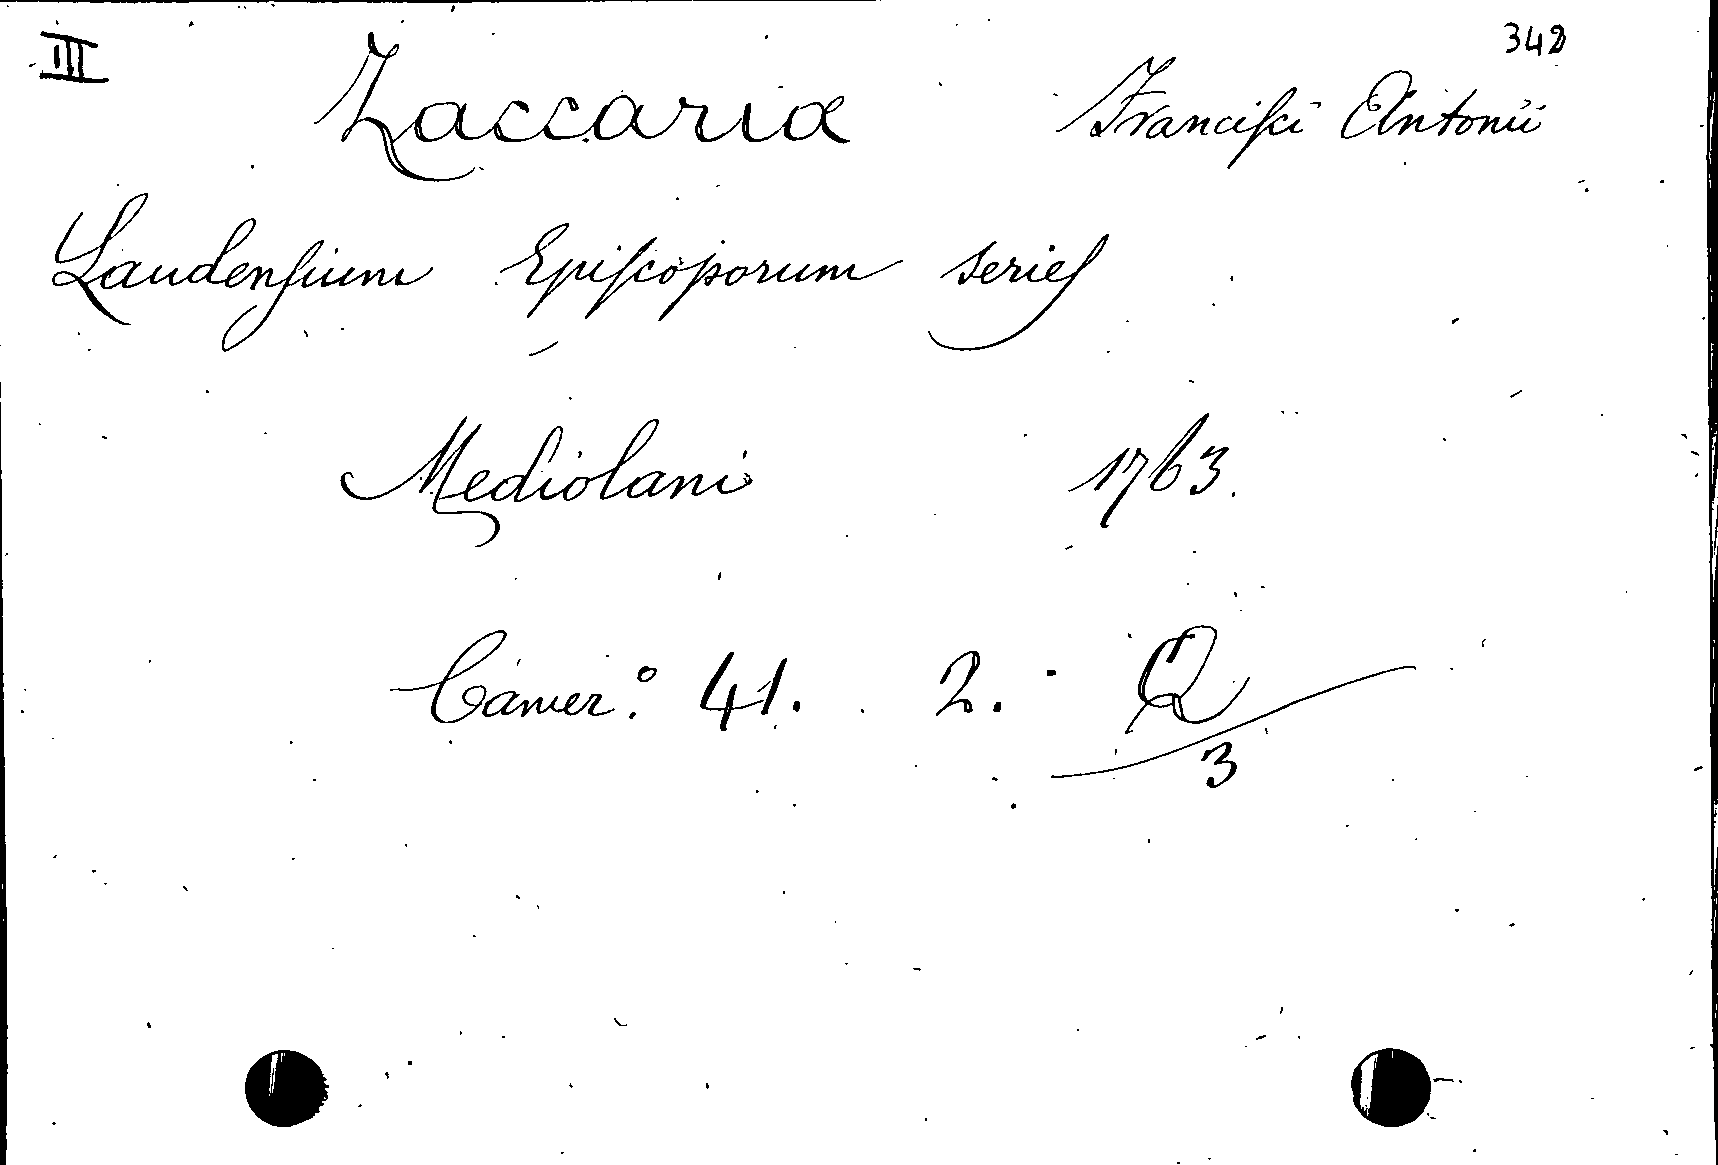 III 342
Zaccaria Franciſci Antonii
Laudenſium Epiſcoporum Series
Mediolani 1763.
Camer.° 41. 2. Q
3